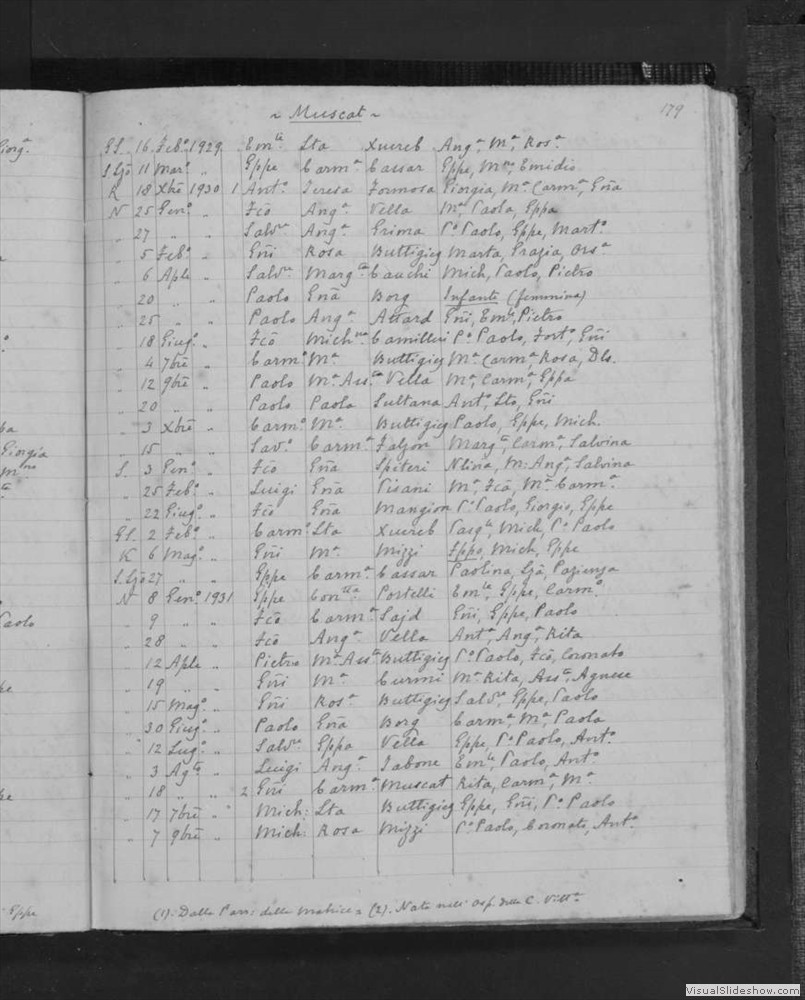 ~ Muscat ~
179
GS. 16 Febo. 1929 Emle Sta Xuereb Anga, Ma, Rosa
S. Gjo 11 Maro. " Eppe Carma Cassar Eppe, Emidio
K 18 Xbre 1930 1 Anto. Teresa Formosa Giorgia, Ma Carma, Gña
N 25 Geno. " Fcõ Anga Vella Ma, Paola, Eppa
" 27 " " Salvre Anga Grima Po Paolo, Eppe, Marto
" 5 Febo. " Gñi Rosa Buttigieg Marta, Grazia, Orsa
" 6 Aple " Salvre Margta Cauchi Mich, Paolo, Pietro
" 20 " " Paolo Gña Borg Infante (femmina)
" 25 " " Paolo Anga Attard Gñi, Emle, Pietro
" 18 Giugo. " Fcõ Michna Camilleri Po Paolo, Forto, Gñi
" 4 7bre " Carmo Ma Buttigieg Ma Carma, Rosa, Dls.
" 12 9bre " Paolo Ma Assta Vella Ma, Carma, Eppa
" 20 " " Paolo Paola Sultana Anto, Sto, Gñi
" 3 Xbre " Carmo Ma Buttigieg Paolo, Eppe, Mich.
" 15 " " Savo. Carma Falzon Margta, Carma, Salvina
S. 3 Geno. " Fcõ Gña Spiteri Ma Anga, Salvina
" 25 Febo. " Luigi Gña Pisani Ma, Fcã, Ma Carma
" 22 Giugo. " Fcõ Gña Mangion Po Paolo, Giorgio, Eppe
GS. 2 Febo. " Carmo Sta Xuereb Pasqle, Mich, Po Paolo
K 6 Mago. " Gñi Ma Mizzi Mich, Eppe
S. Gjo 27 " " Eppe Carma Cassar Paolina, Pazienza
N 8 Geno. 1931 Eppe Contta Portelli Emle, Eppe, Carmo
" 9 " " Fcõ Carma Sajd Gñi, Eppe, Paolo
" 28 " " Fcõ Anga Vella Anta Anga, Rita
" 12 Aple " Pietro Ma Assta Buttigieg Po Paolo, Fcõ, Coronato
" 19 " " Gñi Ma Curmi Ma Rita, Assta, Agnese
" 15 Mago. " Gñi Rosa Buttigieg Salvre, Eppe, Paolo
" 30 Giugo. " Paolo Gña Borg Carma, Ma, Paola
" 12 Lugo. " Salvre Eppa Vella Eppe, Po Paolo, Anto
" 3 Agto " Luigi Anga Tabone Emle, Paolo, Anto
" 18 " " 2 Gñi Carma Muscat Rita, Carma, Ma
" 17 7bre " Mich: Sta Buttigieg Eppe, Gñi, Po Paolo
" 7 9bre " Mich: Rosa Mizzi Po Paolo, Coronato, Anto
(1). Dalla Parr: della Matrice = (2). Nata nell' Osp. della C. Vitta
Giorga
Giorgia
Paolo
Eppe
VisualSlideshow.com